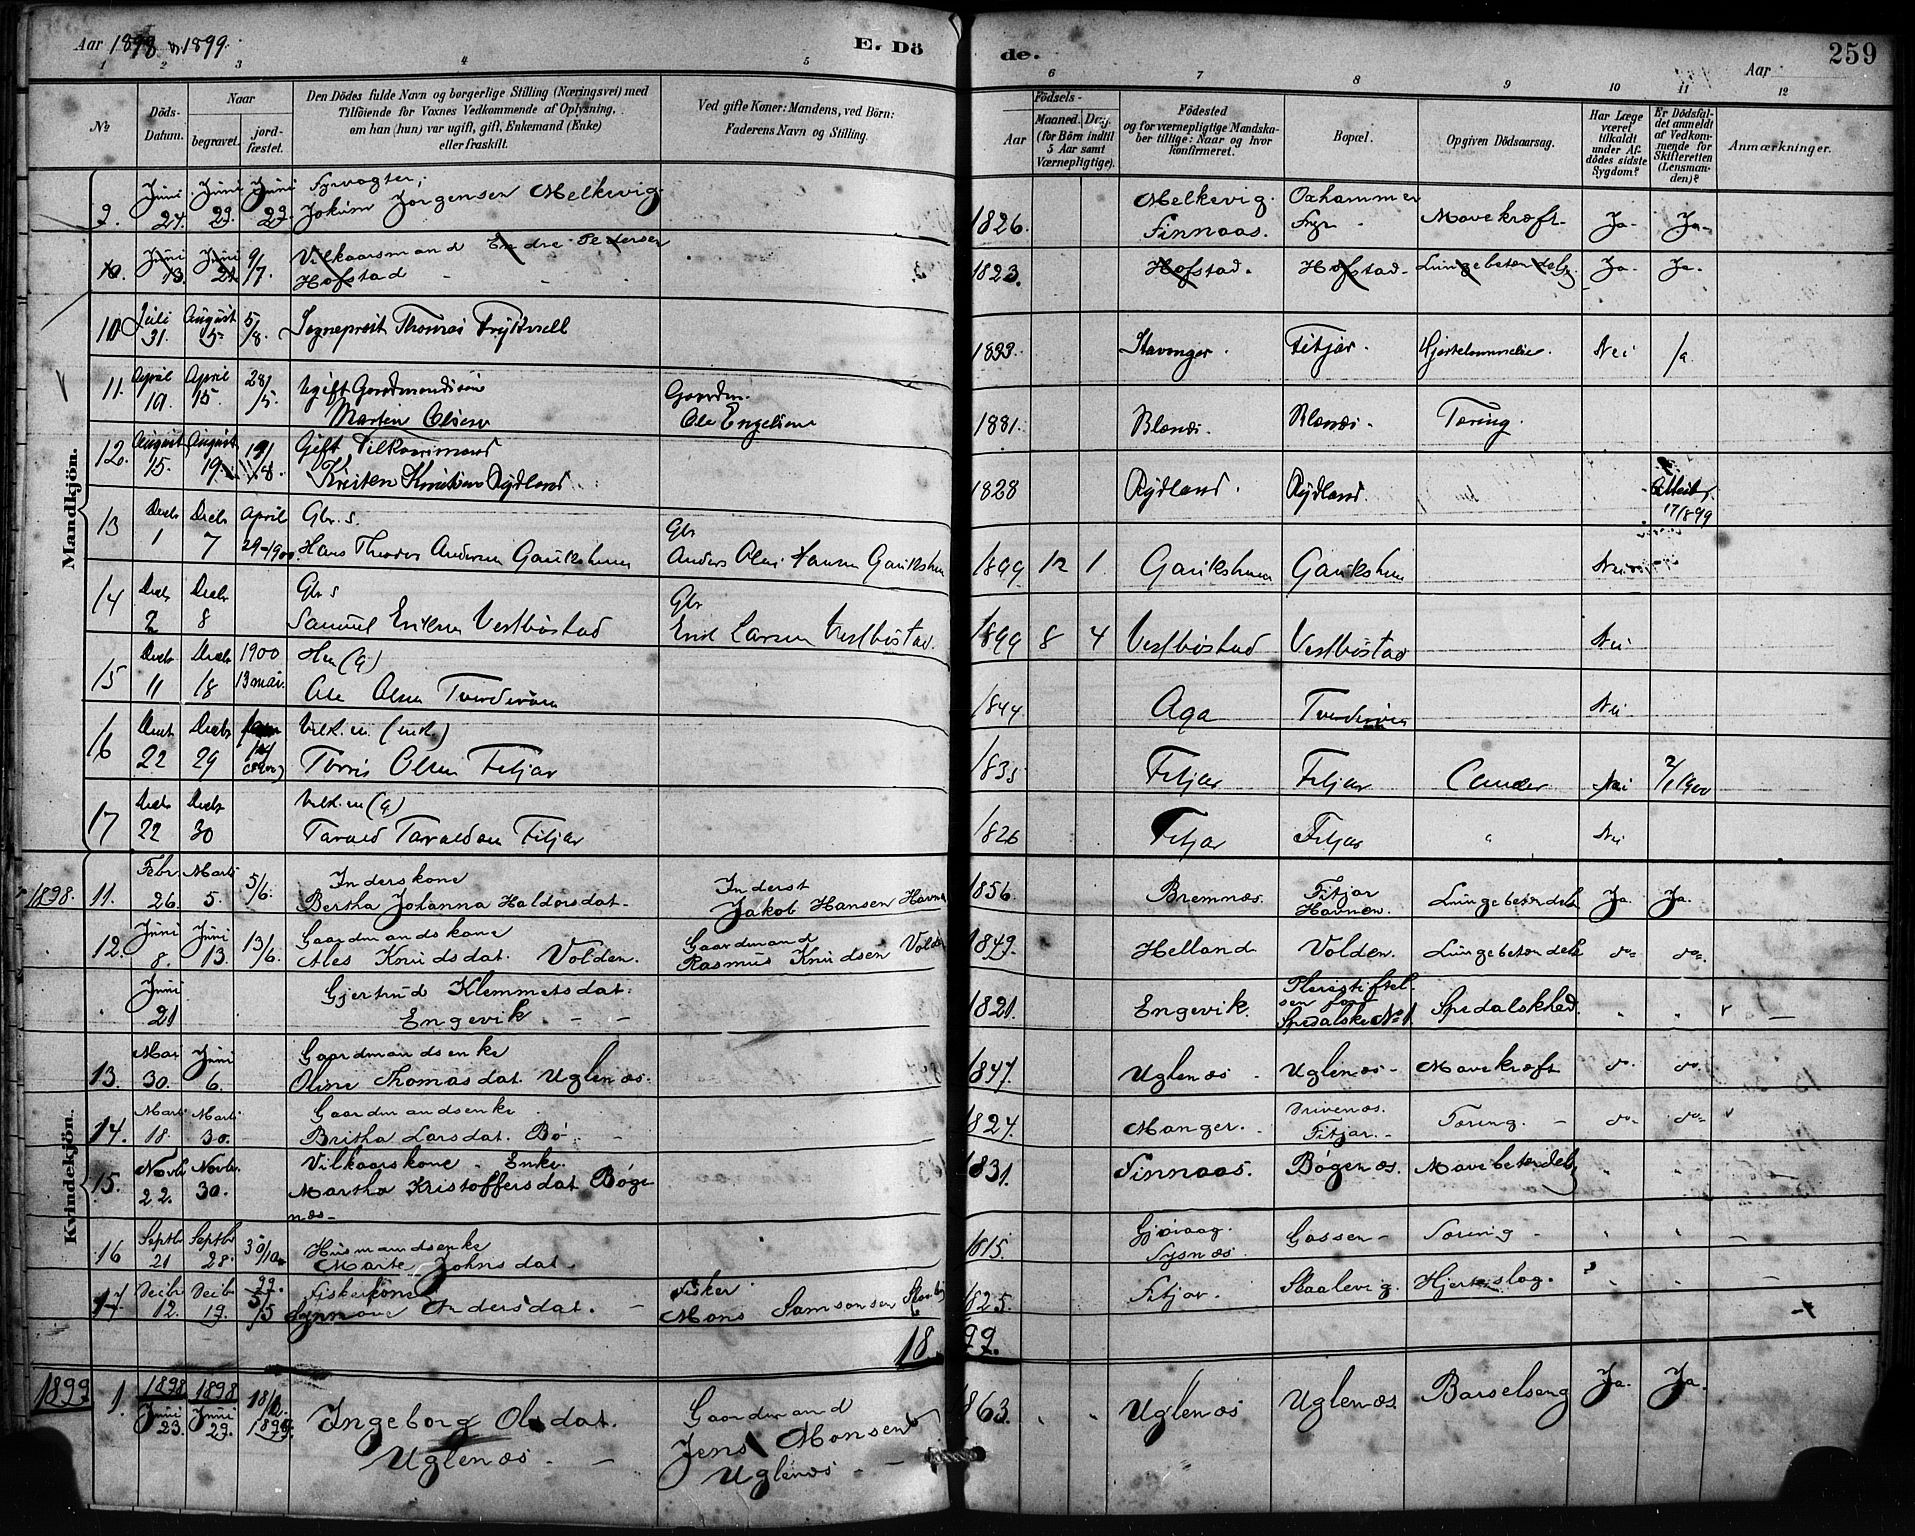 Aar 1898 & 1899.
E. Dö
de.
Aar
259
1 2 3 4 5 6 7 8 9 10 11 12
No
Döds-Datum.
Naar
begravet.
jord-fæstet.
Den Dödes fulde Navn og borgerlige Stilling (Næringsvei) med
Tilföiende for Voxnes Vedkommende af Oplysning,
om han (hun) var ugift, gift, Enkemand (Enke)
eller fraskilt.
Ved gifte Koner: Mandens, ved Börn:
Faderens Navn og Stilling.
Födsels-
Aar
Maaned. Dag.
(for Börn indtil
5 Aar samt
Værnepligtige).
Födested
og for værnepligtige Mandska-
ber tillige: Naar og hvor
konfirmeret.
Bopæl.
Opgiven Dödsaarsag.
Har Læge
været
tilkaldt
under Af-
dödes sidste
Sygdom?
Er Dödsfal-
det anmeldt
af Vedkom-
mende for
Skifteretten
(Lensman-
den)?
Anmærkninger.
Mandkjön.
9. Juni 24. Juni 29. Juni 29. Fyrvogter; Jokum Jorgensen Melkevig. 1826. Melkevig. Finnaas. Oxhammer Fyr Mavekræft Ja Ja
10. Juni 13. Juni 21 9/7 Vilkaarsmand Endre Pedersen Hofstad 1823. Hofstad. Hofstad Lungebetændelse. Ja. Ja.
10 Juli 31. August 5 5/8. Sogneprest Thomas 1833. Stavanger. Fitjar. Nei Ja
11. April 10. April 15. 28/5. Ugift Gaardmandssøn Martin Olsen Gaardm. Ole Engelsen 1881. Blænæs. Blænæs. Tæring.
12. August 15. August 19. 19/8. Gift Vilkaarsmand Kristen Knutsen Rydland 1828 Rydland. Rydland. 17/8 99
13 Decbr 1 Decbr 7 April 29-1900 Gbr. s. Hans Theodor Andersen Gaukshem Gbr Anders Olai Hansen Gaukshem 1899 12 1 Gaukshem Gaukshem Nei
14 Decbr 2 Decbr 8 Gbr s Samuel Eriksen Vestbøstad Gbr Erik Larsen Vestbøstad. 1899 8 4 Vestbøstad Vestbøstad Nei
15 Decbr 11 Decbr 18 1900 13 mai. (G) Ole Olsen Tverderøen 1844 Aga Tverderøen Nei
16 Decbr 22 Decbr 29 Vilk. m (enk.) Torris Olsen Fitjar 1835 Fitjar Fitjar Cancer Nei 2/1 1900
17 Decbr 22 Decbr 30 Vilk. m (G) Tarald Taraldsen Fitjar 1826 Fitjar Fitjar " Nei
Kvindekjön.
1898. 11. Febr. 26. Marts 5. 5/6. Inderskone Bertha Johanna Haldorsdat. Inderst Jakob Hansen Havnen 1856 Bremnæs. Fitjar Havnen. Lungebetændels Ja. Ja.
12. Juni 8. Juni 13. 13/6. Gaardmandskone Ales Knudsdat. Volden. Gaardmand Rasmus Knudsen Volden 1849. Helland Volden. Lungebetændels do do.
Juni 21 Gjertrud Klemmetsdat. Engevik. 1821. Engevik. Pleiestiftelsen for Spedalske No 1 Spedalskhed. " " v
13. Mai 30. Juni 6. Gaardmandsenke Oline Thomasdat. Uglenæs. 1847. Uglenæs Uglenæs Mavekræft do. do.
14. Marts 18. Marts 30. Gaardmandsenke Britha Larsdat. Bø 1824. Manger. Drivenæs. Fitjar. Tæring. do do v
15. Novbr 22. Novbr. 30. Vilkaarskone. Enke. Martha Kristoffersdat Bøgenæs 1831. Finnaas. Bøgenæs. Mavebetændels " "
16 Septbr 21 Septbr 28. 30/10 Husmandsenke Marte Johnsdat. 1815. Gjøvaag. Tysnæs. Gaasen Tæring " "
17 12. 19. 99. 5 Fiskerkone Synnøve Andersdat. Fisker Mons Samsonsen 1825. Fitjar. Staalevig. Hjerteslag. " "
1899.
1899 1. 1898 Juni 23. 1898 Juni 29. 1899. Ingeborg Olsdat. Uglenæs Gaardmand Jens Monsen Uglenæs 1863. " " Uglenæs Uglenæs Barselseng Ja. Ja.